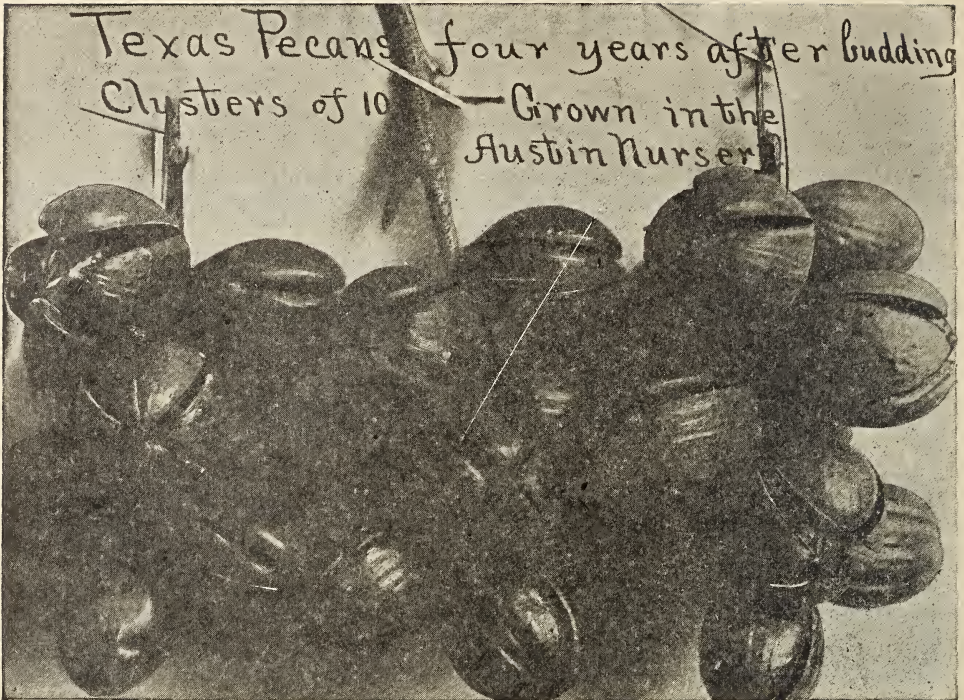 Texas Pecans four years after budding
Clusters of 10 — Grown in the
Austin Nursery